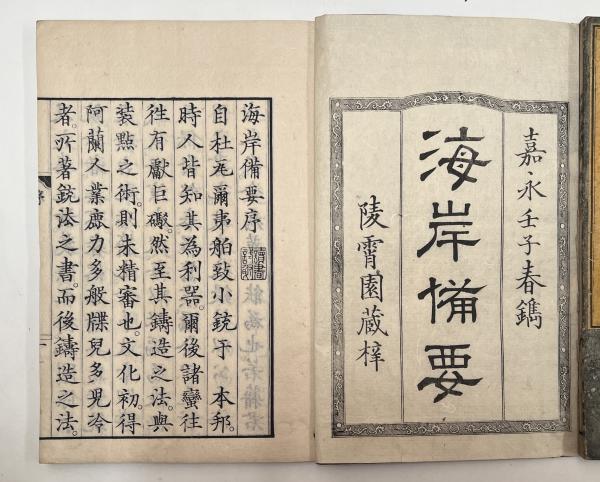 嘉永壬子春鐫
海岸備要
陵霄園蔵梓
海岸備要序
自杜瓦爾弟舶致小銃于 本邦。
時人皆知其為利器。爾後諸蠻往
往有獻巨礮。然至其鑄造之法與
裝點之術。則未精審也。文化初。得
阿蘭人業鹿力多般牒兒多児冷
者。所著銃法之書。而後鑄造之法。
序